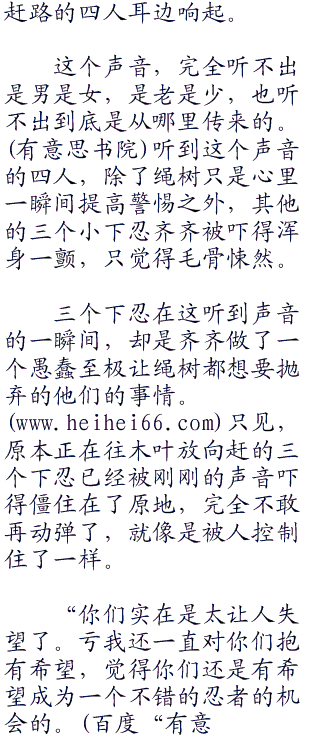 赶路的四人耳边响起。
这个声音，完全听不出
是男是女，是老是少，也听
不出到底是从哪里传来的。
(有意思书院)听到这个声音
的四人，除了绳树只是心里
一瞬间提高警惕之外，其他
的三个小下忍齐齐被吓得浑
身一颤，只觉得毛骨悚然。
三个下忍在这听到声音
的一瞬间，却是齐齐做了一
个愚蠢至极让绳树都想要抛
弃的他们的事情。
(www.heihei66.com)只见，
原本正在往木叶放向赶的三
个下忍已经被刚刚的声音吓
得僵住在了原地，完全不敢
再动弹了，就像是被人控制
住了一样。
“你们实在是太让人失
望了。亏我还一直对你们抱
有希望，觉得你们还是有希
望成为一个不错的忍者的机
会的。(百度“有意